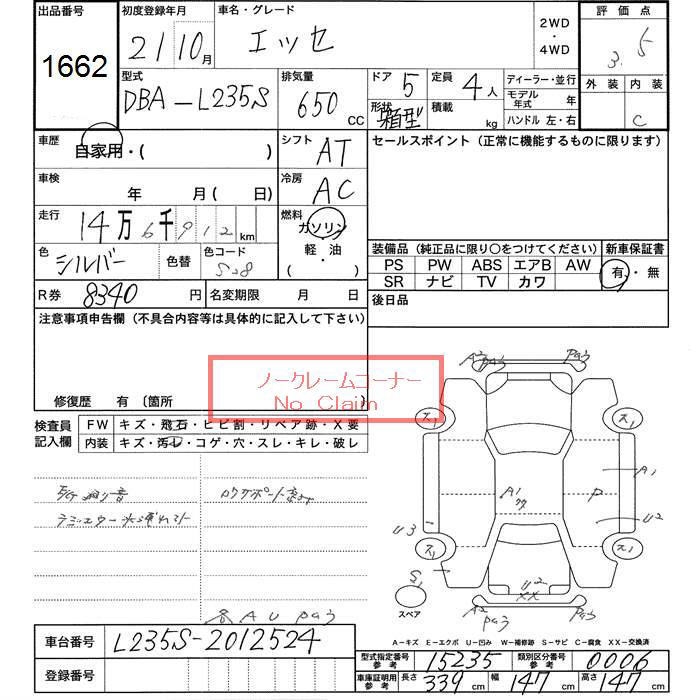 出品番号 初度登録年月 車名・グレード 評価点
1662 21 10月 エッセ 2WD・4WD 3.5
型式 排気量 ドア 5 定員 4人 ディーラー・並行 外装 内装
DBA-L235S 650 CC 形状 箱型 積載 kg モデル年式 年 C
ハンドル 左・右
車歴 自家用・( ) シフト AT セールスポイント (正常に機能するものに限ります)
車検 年 月(日) 冷房 AC
走行 14万6千912km 燃料 ガソリン
軽・油
( )
色 シルバー 色替 色コード S28
装備品 (純正品に限り○をつけてください) 新車保証書
PS PW ABS エアB AW 有・無
SR ナビ TV カワ
R券 8340円 名変期限 月 日 後日品
注意事項申告欄 (不具合内容等は具体的に記入して下さい)
ノークレームコーナー
No Claim
修復歴 有 〔箇所 〕
検査員記入欄 FW キズ・飛石・ヒビ割・リペア跡・X要
内装 キズ・汚レ・コゲ・穴・スレ・キレ・破レ
ラジエター水漏れ
A1
P
U2
U3
A1
S1
U2
XX
スペア
A-キズ E-エクボ U-凹み W-補修跡 S-サビ C-腐食 XX-交換済
車台番号 L235S-2012524
型式指定番号 参考 15235 類別区分番号 参考 0006
登録番号
車庫証明用 参考 長さ 339cm 幅 147cm 高さ 147cm